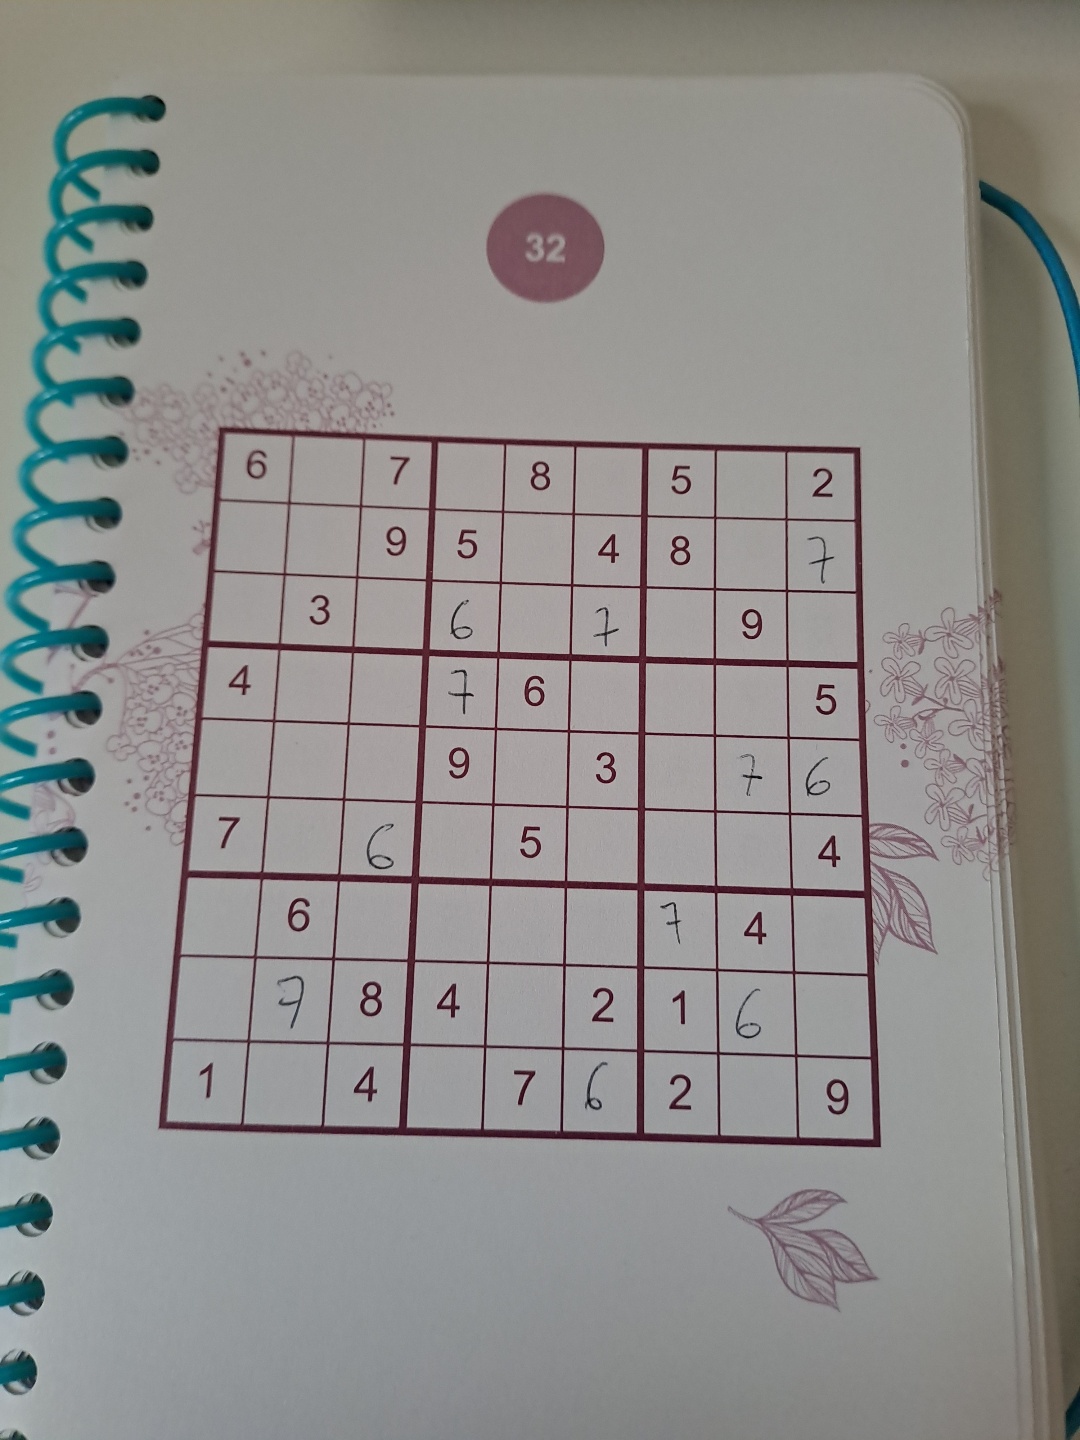 32
6 7 8 5 2
9 5 4 8 7
3 6 7 9
4 7 6 5
9 3 7 6
7 6 5 4
6 7 4
7 8 4 2 1 6
1 4 7 6 2 9